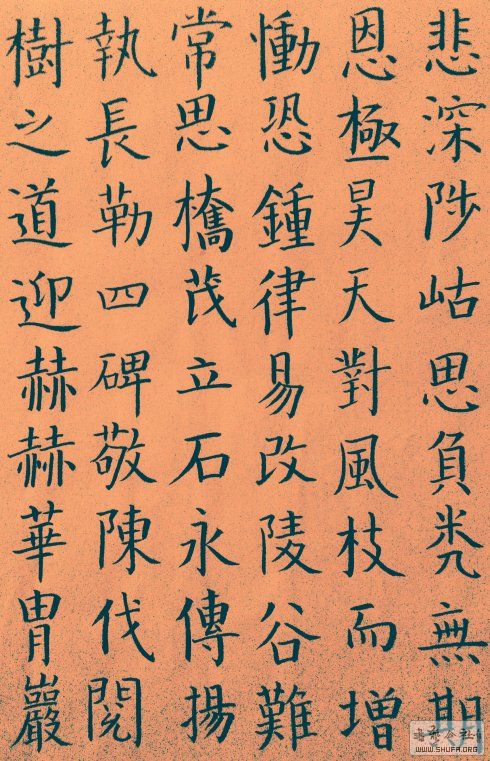 悲深陟岵思負無期
恩極昊天對風枝而增
慟恐鍾律易改陵谷難
常思茂立石永傳揚
執長勒四碑敬陳伐閱
樹之道迎赫赫華胄巖
WWW.SHUFA.ORG